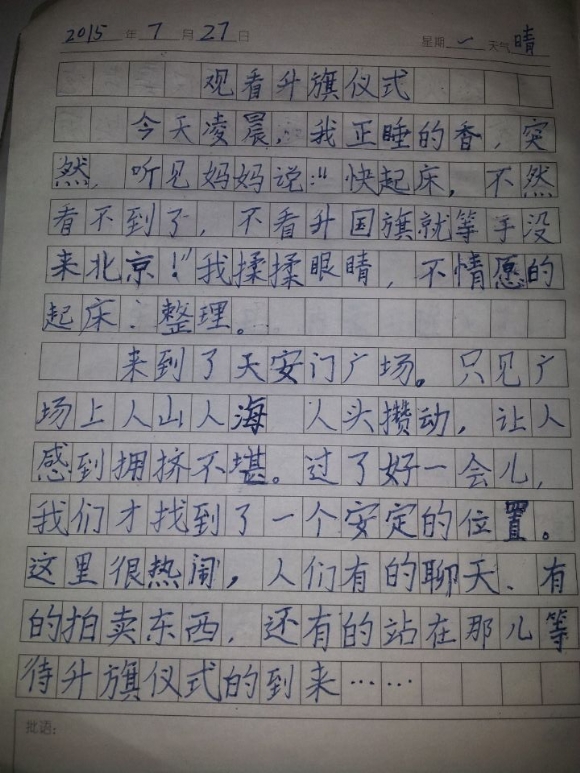 2015年7月27日 星期一 天气晴
观看升旗仪式
今天凌晨,我正睡的香,突
然,听见妈妈说:"快起床,不然
看不到了,不看升国旗就等于没
来北京!"我揉揉眼睛,不情愿的
起床、整理。
来到了天安门广场。只见广
场上人山人海 人头攒动,让人
感到拥挤不堪。过了好一会儿,
我们才找到了一个安定的位置。
这里很热闹,人们有的聊天、有
的拍卖东西,还有的站在那儿等
待升旗仪式的到来……
批语: